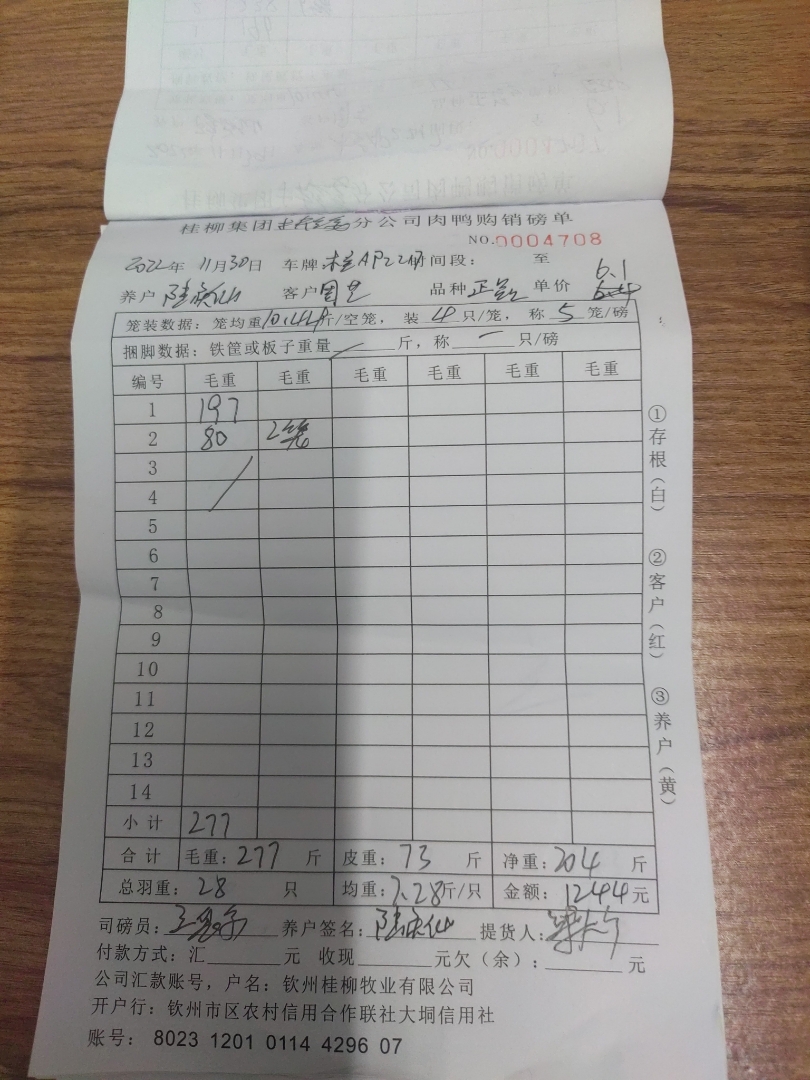 桂柳集团 分公司肉鸭购销磅单
NO.0004708
2022年 11月30日 车牌 时间段: 至
养户 客户 品种 单价 6.1
笼装数据: 笼均重10.44斤/空笼, 装4只/笼, 称5笼/磅
捆脚数据: 铁筐或板子重量 斤, 称 只/磅
编号 毛重 毛重 毛重 毛重 毛重 毛重
1 197
2 80 2笼
3
4
5
6
7
8
9
10
11
12
13
14
小计 277
合计 毛重: 277 斤 皮重: 73 斤 净重: 204 斤
总羽重: 28 只 均重: 7.28斤/只 金额: 1244元
司磅员: 养户签名: 提货人:
付款方式: 汇 元 收现 元欠(余): 元
公司汇款账号, 户名: 钦州桂柳牧业有限公司
开户行: 钦州市区农村信用合作联社大垌信用社
账号: 8023 1201 0114 4296 07
①存根(白)
②客户(红)
③养户(黄)